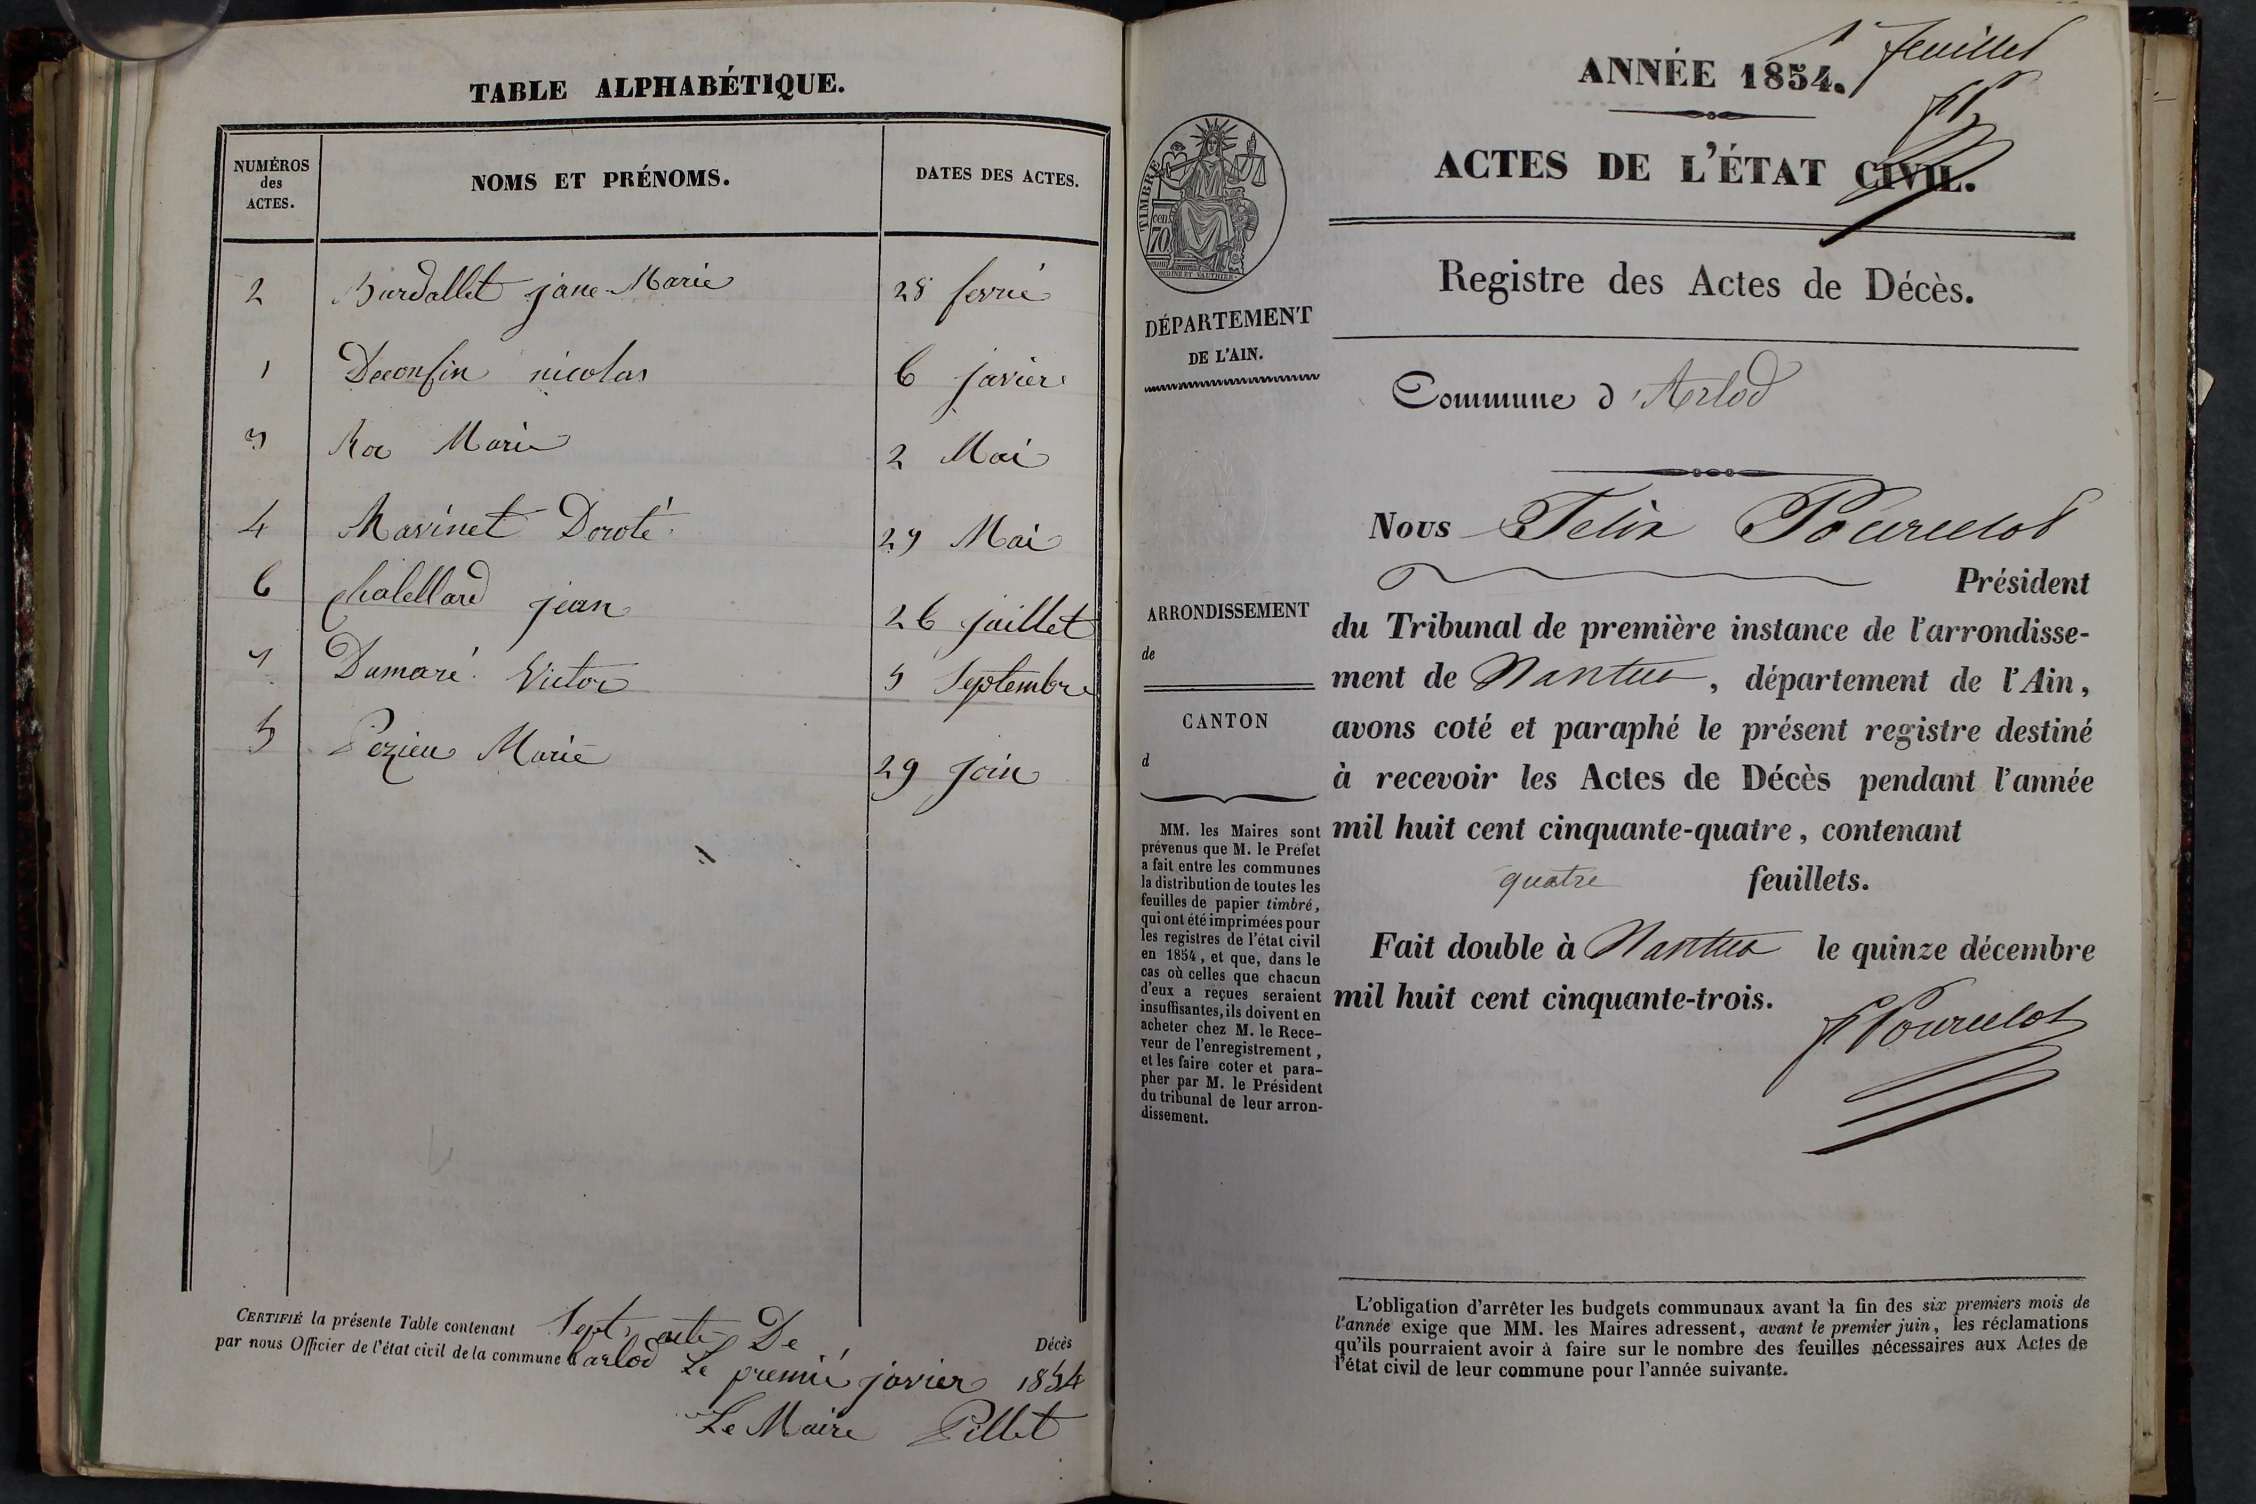 TABLE ALPHABÉTIQUE.
NUMÉROS
des
ACTES.
NOMS ET PRÉNOMS.
DATES DES ACTES.
2 Burdallet jane-Marie 28 fevrié
1 Deconfin nicolas 6 javier
3 Roc Marie 2 Mai
4 Mavinet Doroté 29 Mai
6 Chalellard jean 26 juillet
7 Dumaré Victor 5 Septembre
5 Pezieu Marie 29 join
CERTIFIÉ la présente Table contenant Sept acte De Décès
par nous Officier de l'état civil de la commune d'arlod Le premié javier 1854
Le Maire Pillet
1r feuillet
ANNÉE 1854.
ACTES DE L'ÉTAT CIVIL.
Registre des Actes de Décès.
TIMBRE
cen.
70
DÉPARTEMENT
DE L'AIN.
Commune d'Arlod
Nous Felix Pourcelot
Président
du Tribunal de première instance de l'arrondisse-
ment de Nantua, département de l'Ain,
avons coté et paraphé le présent registre destiné
à recevoir les Actes de Décès pendant l'année
mil huit cent cinquante-quatre, contenant
quatre feuillets.
Fait double à Nantua le quinze décembre
mil huit cent cinquante-trois.
F Pourcelot
ARRONDISSEMENT
de
CANTON
d
MM. les Maires sont
prévenus que M. le Préfet
a fait entre les communes
la distribution de toutes les
feuilles de papier timbré,
qui ont été imprimées pour
les registres de l'état civil
en 1854, et que, dans le
cas où celles que chacun
d'eux a reçues seraient
insuffisantes, ils doivent en
acheter chez M. le Rece-
veur de l'enregistrement,
et les faire coter et para-
pher par M. le Président
du tribunal de leur arron-
dissement.
L'obligation d'arrêter les budgets communaux avant la fin des six premiers mois de
l'année exige que MM. les Maires adressent, avant le premier juin, les réclamations
qu'ils pourraient avoir à faire sur le nombre des feuilles nécessaires aux Actes de
l'état civil de leur commune pour l'année suivante.